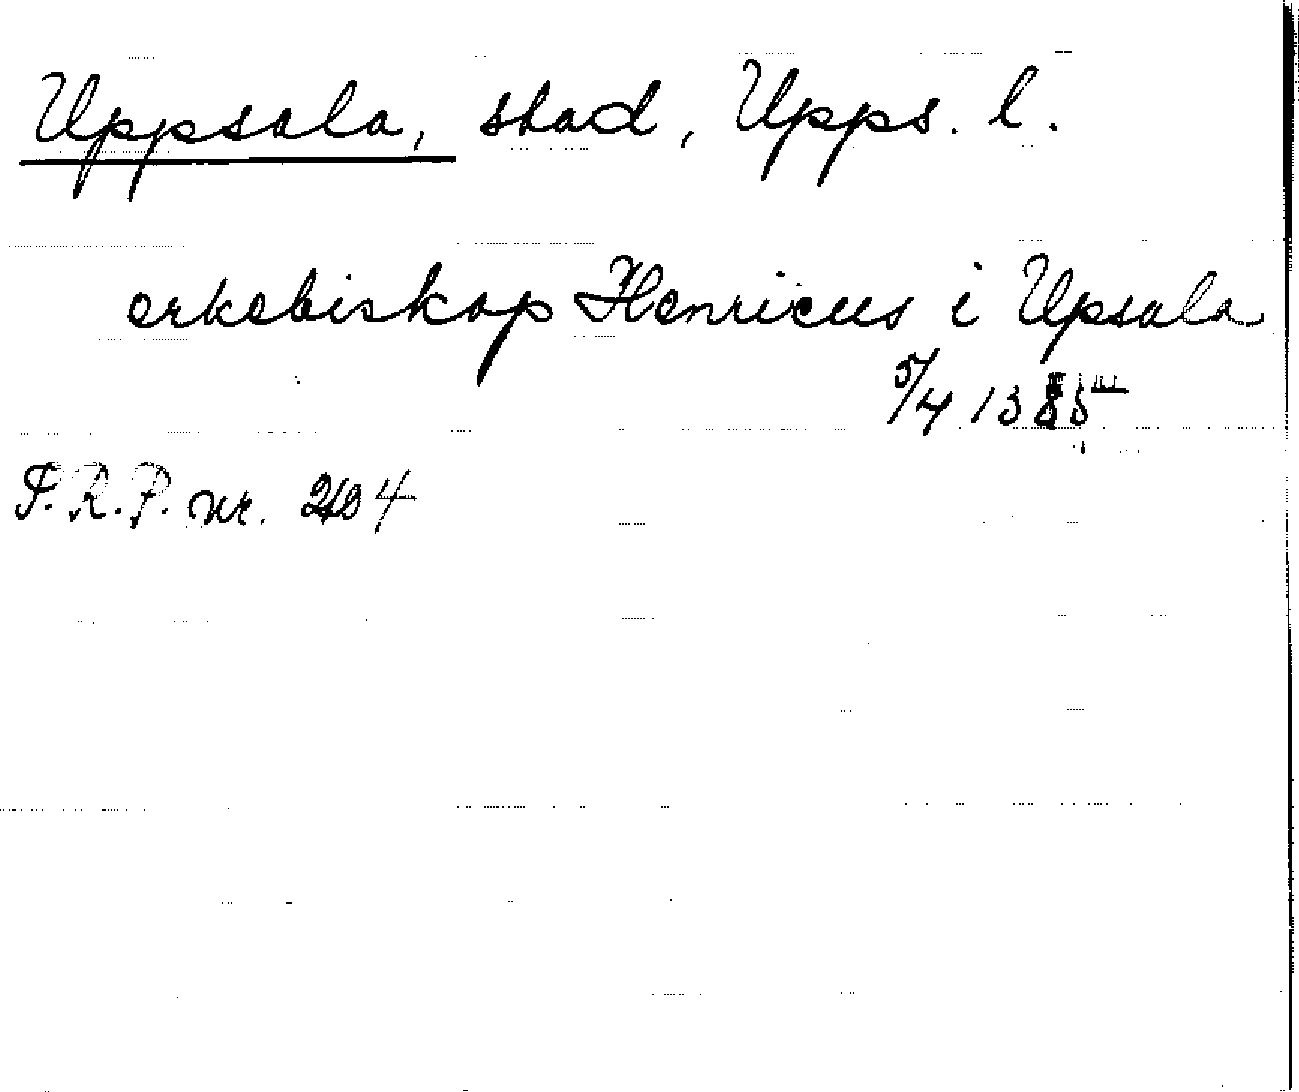 Uppsala, stad, Upps. l.
erkebiskop Henricus i Upsala
5/4 1385
S.R.P. nr.